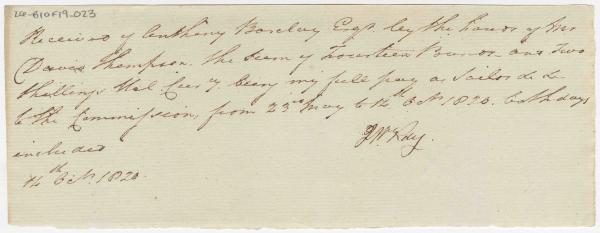 26-B10F19-023
Received of Anthony Barclay Esqr. by the hands of Mr
David Thompson the Sum of Fourteen Pounds and two
Shillings Hal. Cury. being my full pay as Sailor &c &c
to the Commission, from 23rd May to 14th Oct. 1820. both days
included
14th Oct. 1820.